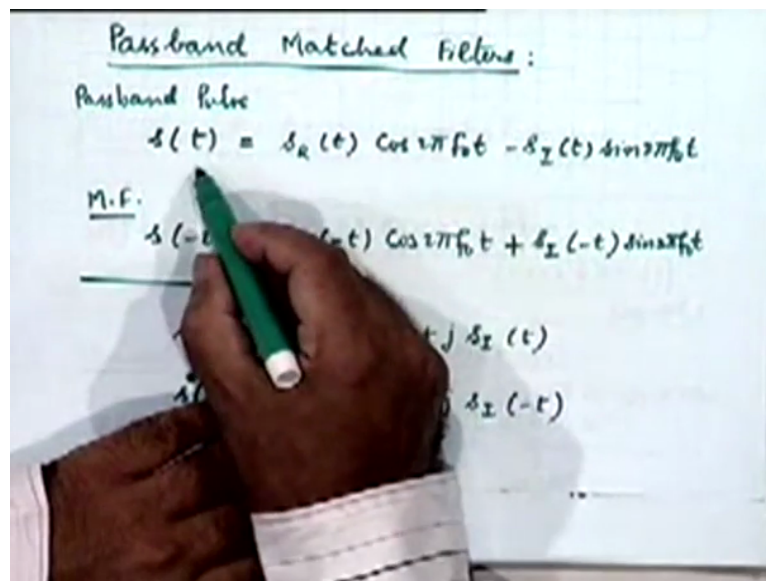 Passband Matched Filters :
Passband Pulse
s(t) = s_R(t) cos 2πf₀t - s_I(t) sin 2πf₀t
M.F.
s(-t) cos 2πf₀t + s_I(-t) sin 2πf₀t
+ j s_I(t)
s_I(-t)